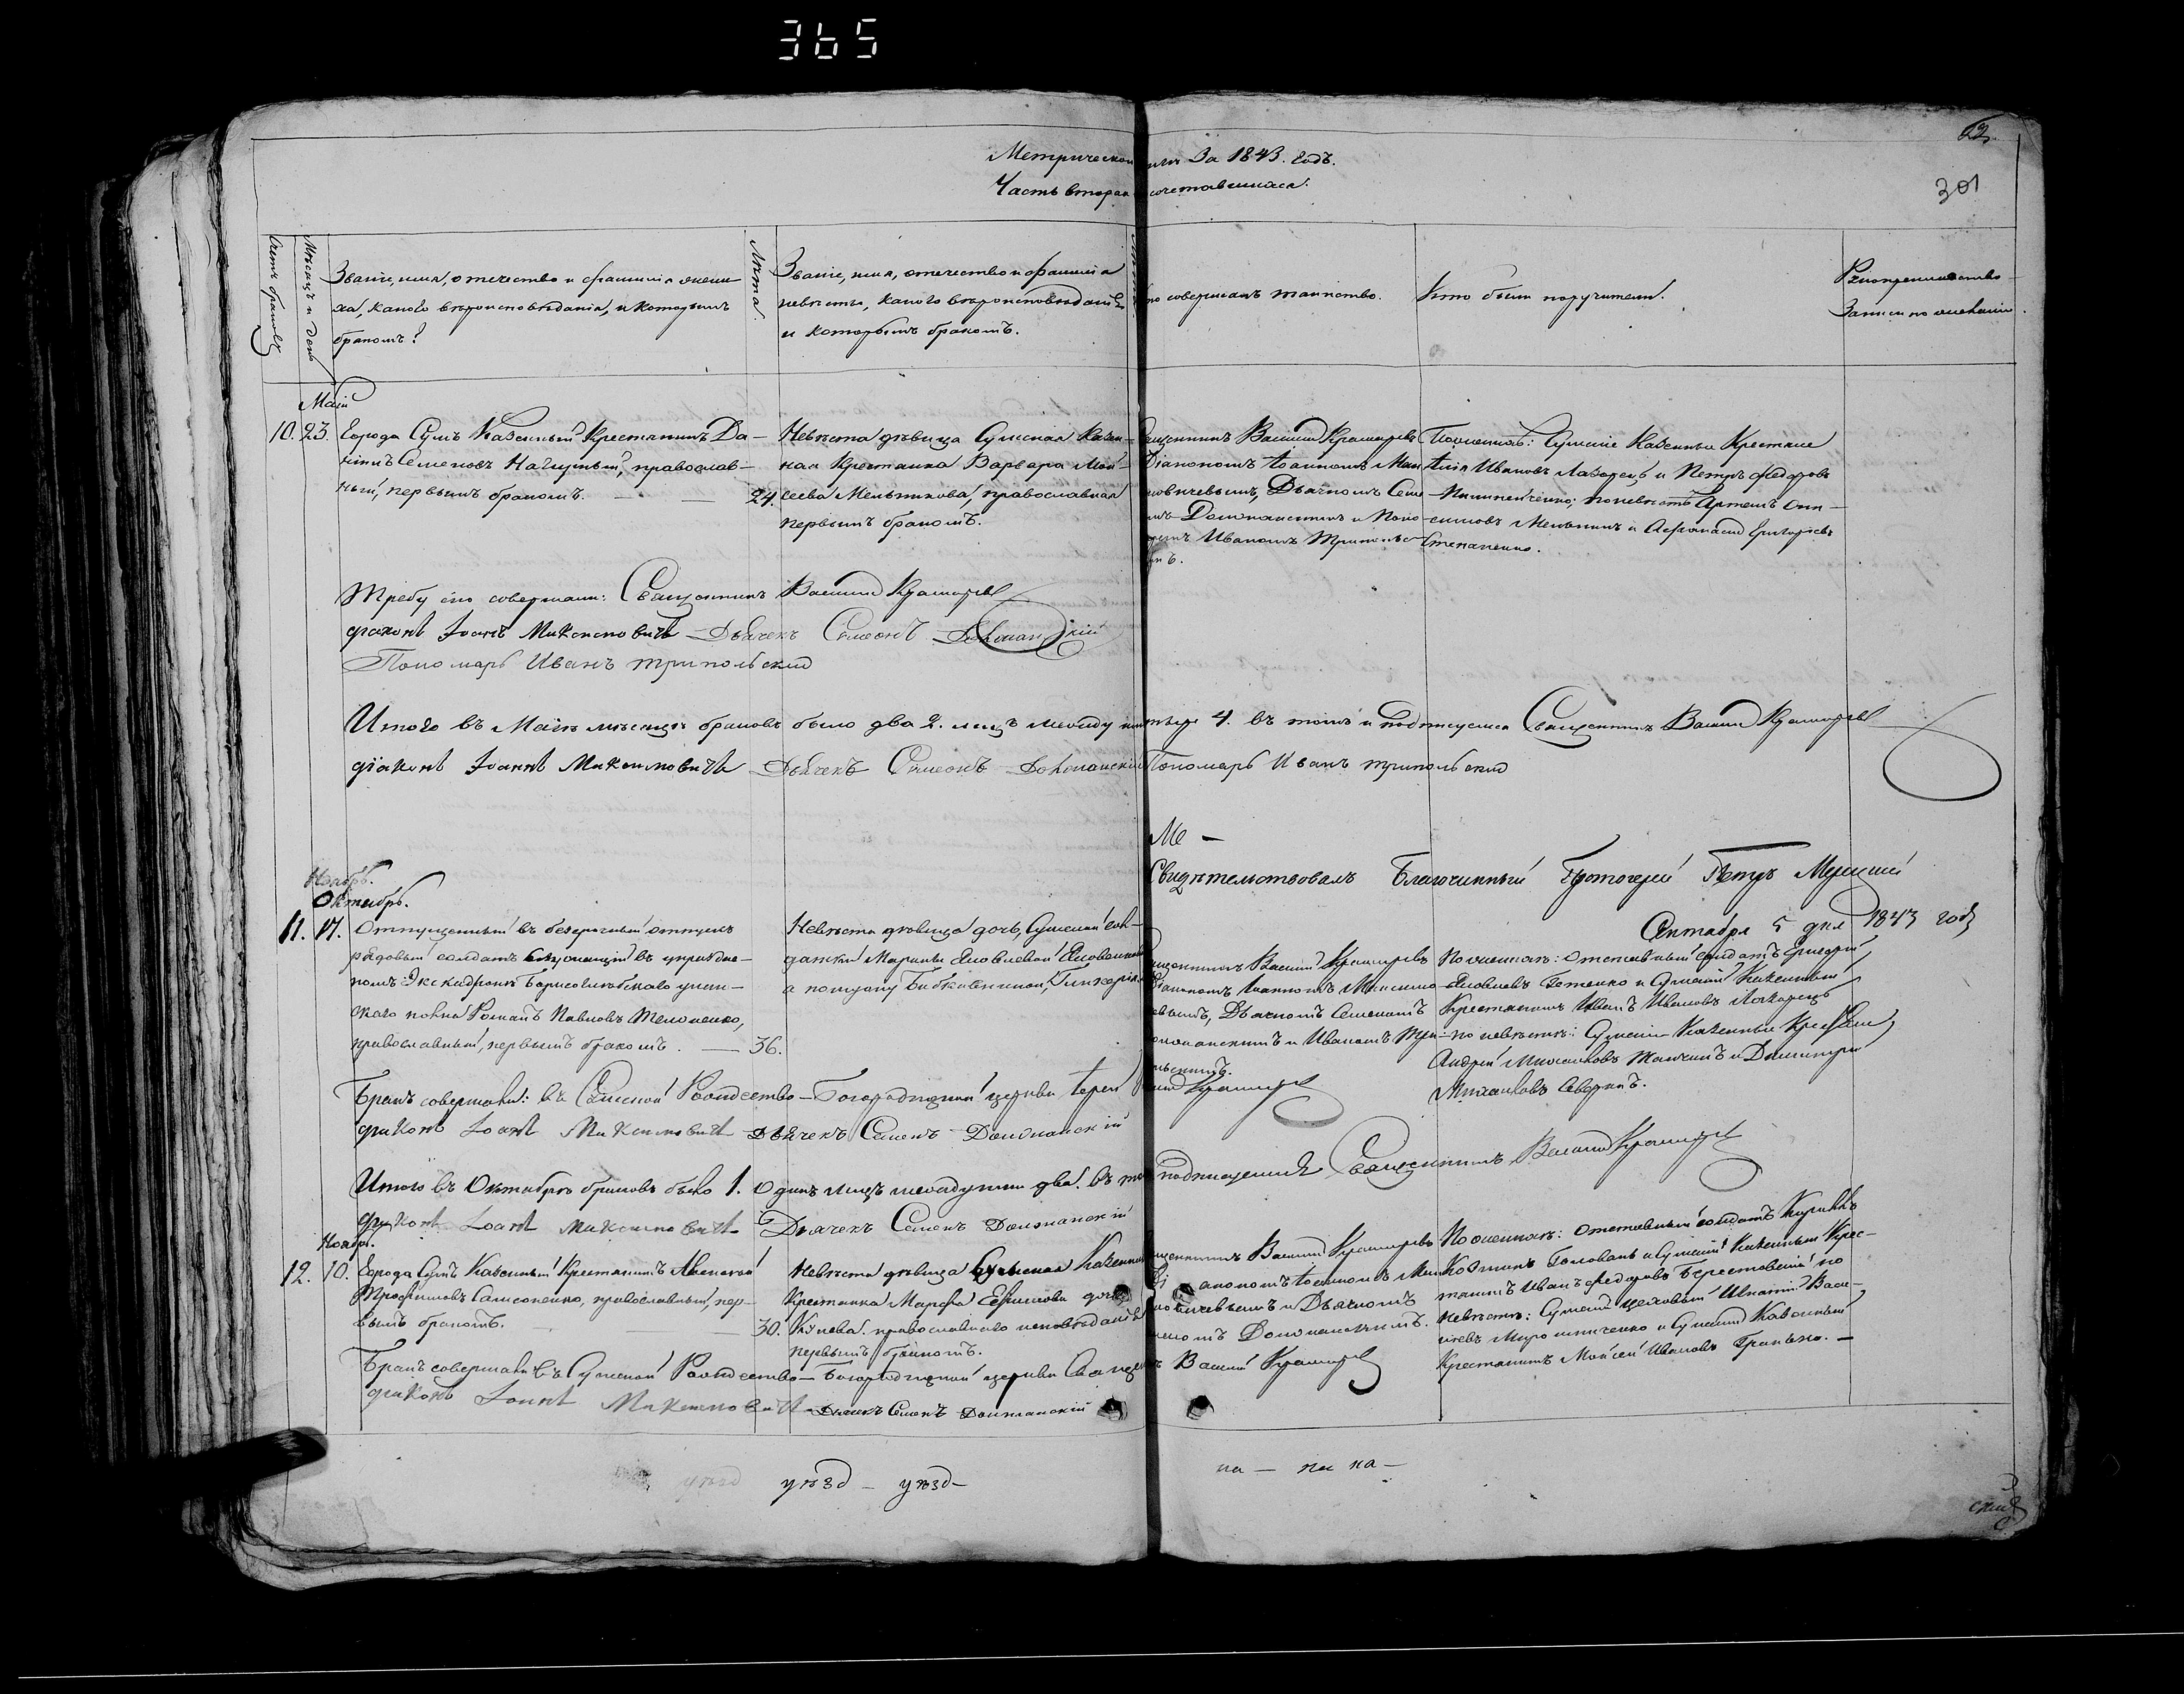 365
62.
301
Метрической книги За 1843. Годъ.
Часть вторая сочетавшихся.
Счетъ браковъ
Мѣсяцъ и день
Званіе, имя, отечество и фамилія жени-
ха, какого вѣроисповѣданія, и которымъ
бракомъ?
Лѣта.
Званіе, имя, отечество и фамилія
невѣсты, какого вѣроисповѣданія
и которымъ бракомъ.
Кто совершалъ таинство.
Кто были поручители.
Май
10. 23. Города Сумъ Казенный Крестьянинъ Да-
ніилъ Семеновъ православ-
ный, первымъ бракомъ. — — 24.
Невѣста дѣвица Сумская Казен-
ная Крестьянка Варвара Мои-
сеева Мельникова, православная
первымъ бракомъ.
Священникъ Василій Крамаревъ
Діакономъ Іоанномъ Макси-
мовичевымъ, Дьячкомъ Семе-
номъ Доломанскимъ и Поно-
маремъ Иваномъ Трипольс-
кимъ.
По женихѣ: Сумскіе Казенные Крестьяне
Ивановъ и Петръ Федоровъ
по невѣстѣ Артемъ Они-
симовъ Мельникъ и Афанасій Григорьевъ
Степаненко.
Требу сію совершали: Священникъ Василій Крамаревъ
діаконъ Іоаннъ Максимовичъ Дьячекъ Симеонъ Доломанскій
Пономарь Иванъ Трипольскій
Итого въ Маѣ мѣсяцѣ браковъ было два 2. лицъ между ими четыре 4. въ томъ и подписуемся Священникъ Василій Крамаревъ
діаконъ Іоаннъ Максимовичъ Дьячекъ Симеонъ Доломанскій Пономарь Иванъ Трипольскій
Ме —
Свидѣтельствовалъ Благочинный Протоіерей Петръ
Сентября 5 дня 1843 года
Ноябрь.
Октябрь.
11. 17. Отпущенный въ безсрочный отпускъ
рядовый солдатъ
номъ Эскадронѣ Борисоглѣбскаго улан-
скаго полка Романъ Павловъ
православный, первымъ бракомъ. — 36.
Невѣста дѣвица дочь, Сумской сол-
датки Марины Яковлевой
а по мужу
Священникъ Василій Крамаревъ
Діакономъ Іоанномъ Максимо-
вичевымъ, Дьячкомъ Семеномъ
Доломанскимъ и Иваномъ Три-
польскимъ.
По женихѣ: Отставный солдатъ Григорій
Яковлевъ и Сумской Казенный
Крестьянинъ Иванъ Ивановъ
по невѣстѣ: Сумскіе Казенные Крестьяне
Андрей Михайловъ и Димитрій
Михайловъ
Бракъ совершали: въ Сумской Рождество-Богородичной церкви Іерей Василій Крамаревъ
діаконъ Іоаннъ Максимовичъ Дьячекъ Семенъ Доломанскій
Итого въ Октябрѣ браковъ было 1. Одинъ лицъ между ими два. въ томъ подписуемся Священникъ Василій Крамаревъ
діаконъ Іоаннъ Максимовичъ Дьячекъ Семенъ Доломанскій
Ноябрь.
12. 10. Города Сумъ Казенный Крестьянинъ Алексѣй
Трофимовъ Самсоненко, православный, пер-
вымъ бракомъ. — 30.
Невѣста дѣвица Сумская Казенная
Крестьянка Марфа Ефимова дочь
православнаго исповѣданія
первымъ бракомъ.
Священникъ Василій Крамаревъ
Діакономъ Іоанномъ Макси-
мовичевымъ и Дьячкомъ
Семеномъ Доломанскимъ.
По женихѣ: Отставный солдатъ Кириллъ
Козминъ Голованъ и Сумской Казенный Крес-
тьянинъ Иванъ Федоровъ Берестовскій по
невѣстѣ: Сумской цеховый Игнатій Васи-
льевъ Мирошниченко и Сумской Казенный
Крестьянинъ Моисей Ивановъ —
Бракъ совершали въ Сумской Рождество-Богородичной церкви Священникъ Василій Крамаревъ
діаконъ Іоаннъ Максимовичъ Дьячекъ Семенъ Доломанскій
уѣзд уѣзд — уѣзд —
на — на на —